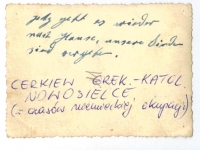 geht es wieder
nach Hause, unsere Lieder
sind
CERKIEW GREK.-KATOL
NOWOSIELCE
(z czasów niemieckiej okupacji)